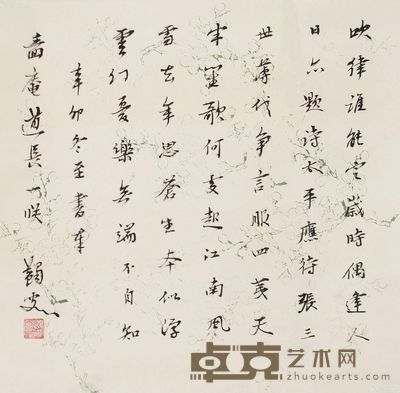 吹律誰能定歲時偶逢人
日亦題詩太平應待張三
世薄伐爭言服四夷天
半笙歌何處起江南風
雪去年思蒼生本似浮
雲行憂樂無端不自知
辛卯冬至書奉
嗇庵道長一咲
蠲叟
卓克艺术网
zhuokearts.com